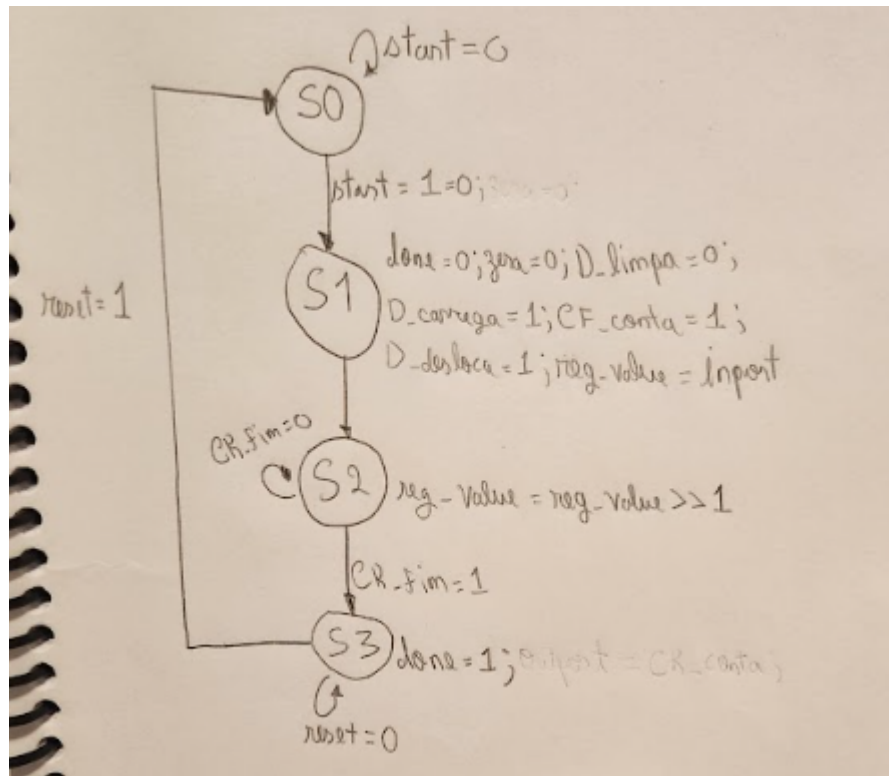 start=0
S0
start = 1=0;
reset=1
S1
done=0; zera=0; D_limpa=0;
D_carrega=1; CF_conta=1;
D_desloca=1; reg_value=inport
CR_fim=0
S2
reg_value=reg_value>>1
CR_fim=1
S3
done=1; Outport=CR_conta;
reset=0